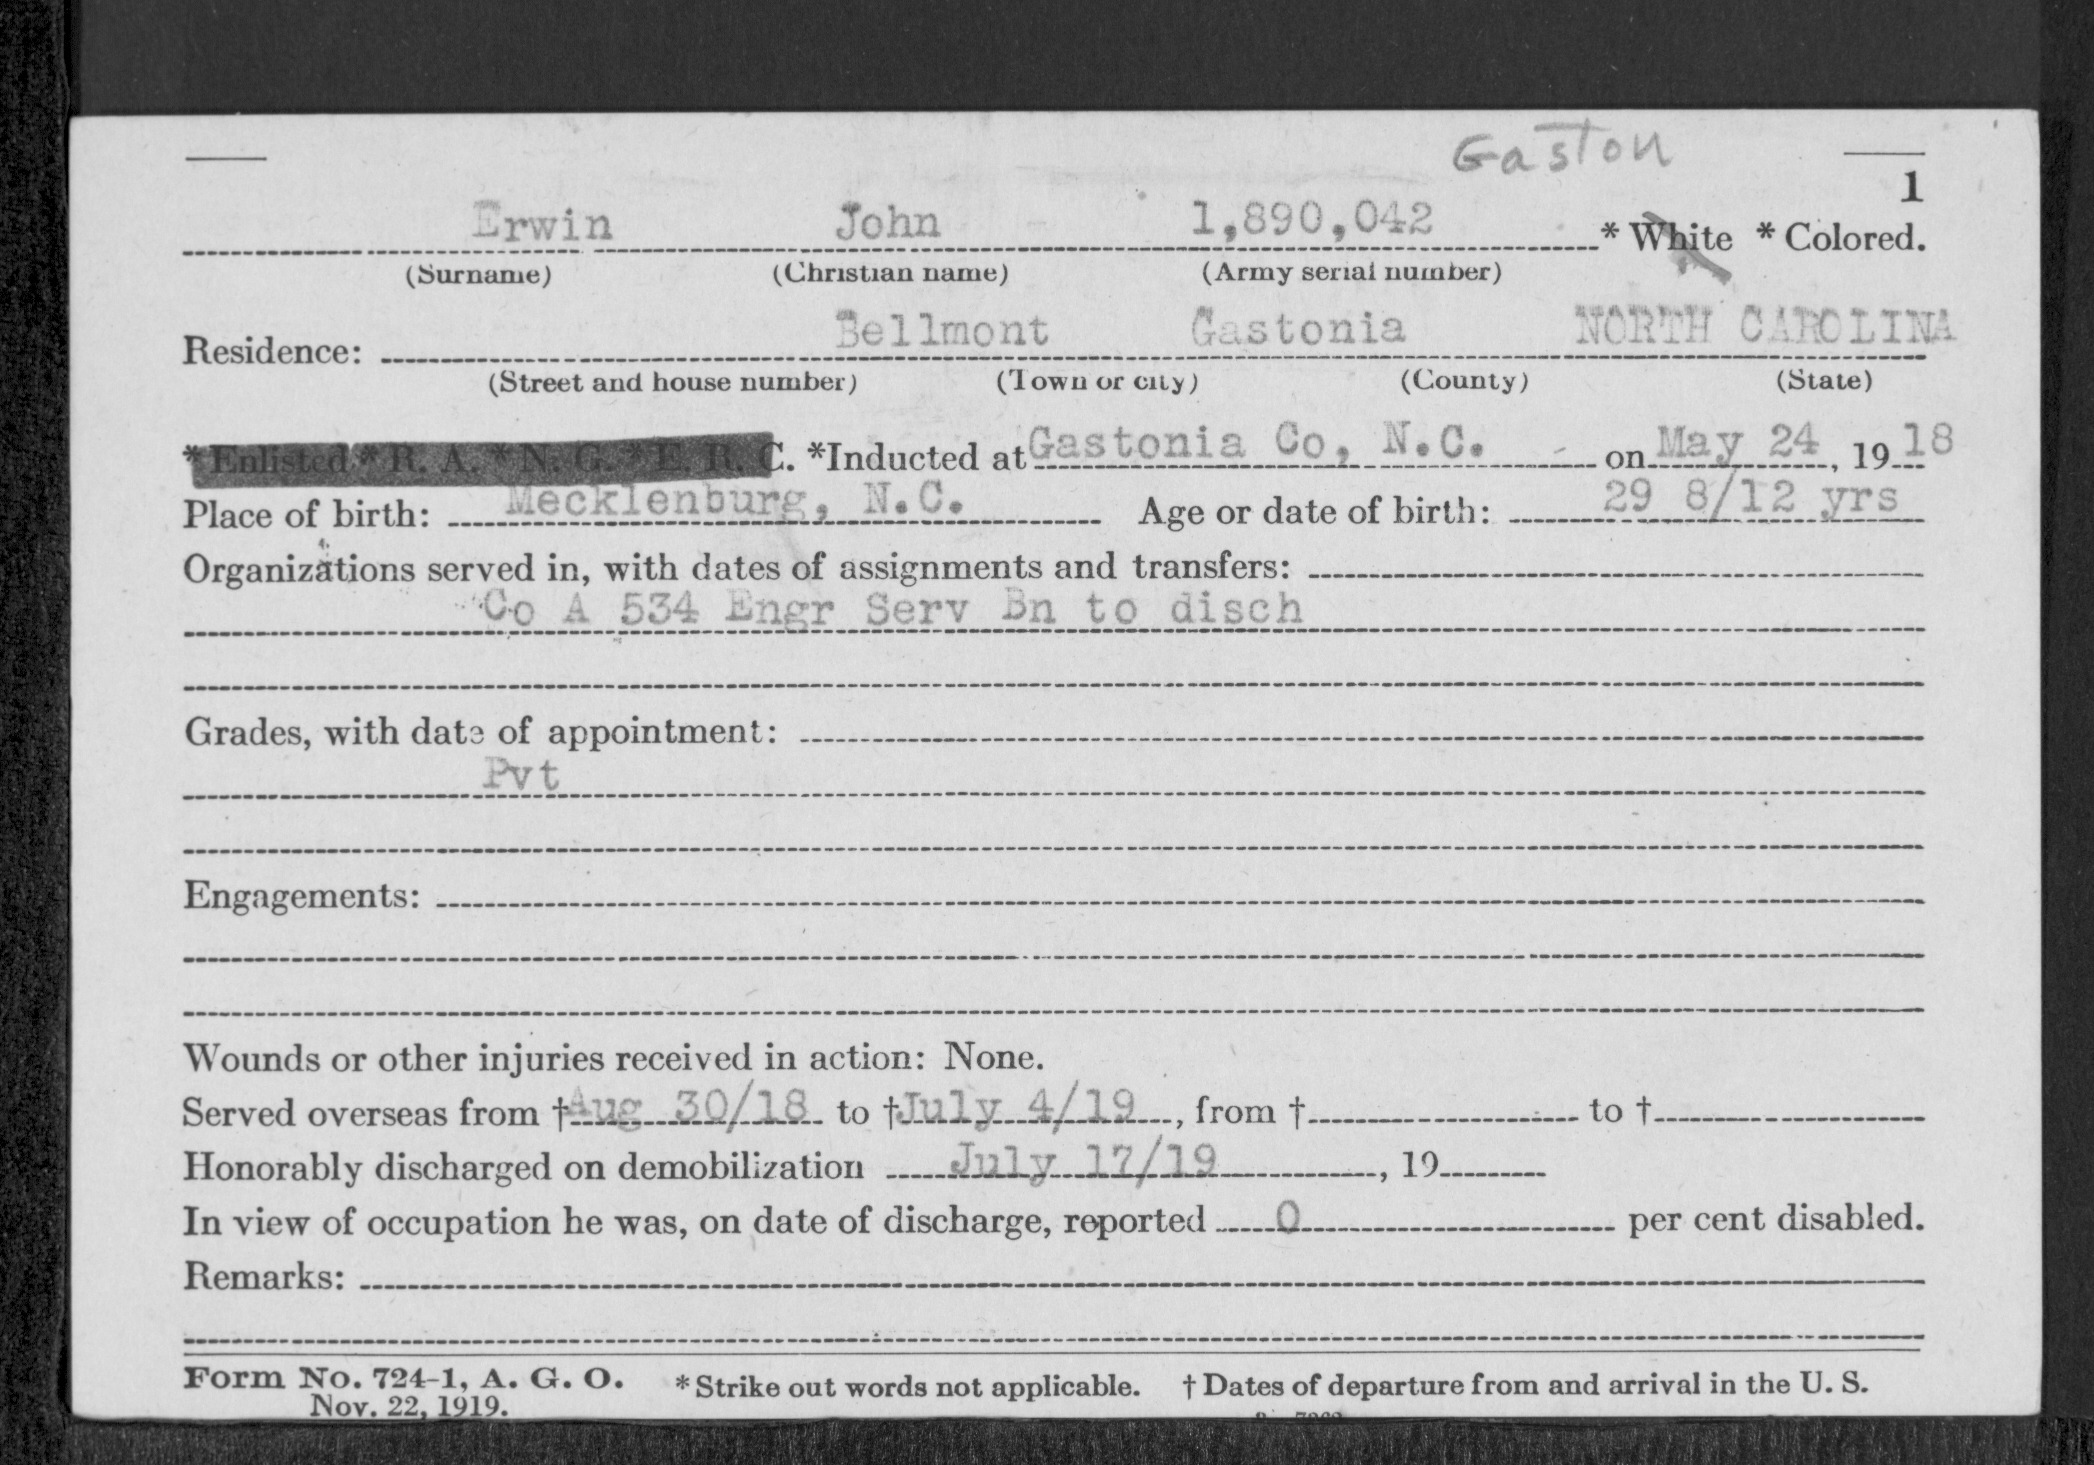 Gaston
1
Erwin John 1,890,042 * White * Colored.
(Surname) (Christian name) (Army serial number)
Residence: Bellmont Gastonia NORTH CAROLINA
(Street and house number) (Town or city) (County) (State)
*Enlisted * R. A. * N. G. * E. R. C. *Inducted at Gastonia Co, N.C. on May 24, 1918
Place of birth: Mecklenburg, N.C. Age or date of birth: 29 8/12 yrs
Organizations served in, with dates of assignments and transfers:
Co A 534 Engr Serv Bn to disch
Grades, with date of appointment:
Pvt
Engagements:
Wounds or other injuries received in action: None.
Served overseas from † Aug 30/18 to † July 4/19, from † to †
Honorably discharged on demobilization July 17/19, 19
In view of occupation he was, on date of discharge, reported 0 per cent disabled.
Remarks:
Form No. 724-1, A. G. O. * Strike out words not applicable. † Dates of departure from and arrival in the U. S.
Nov. 22, 1919.